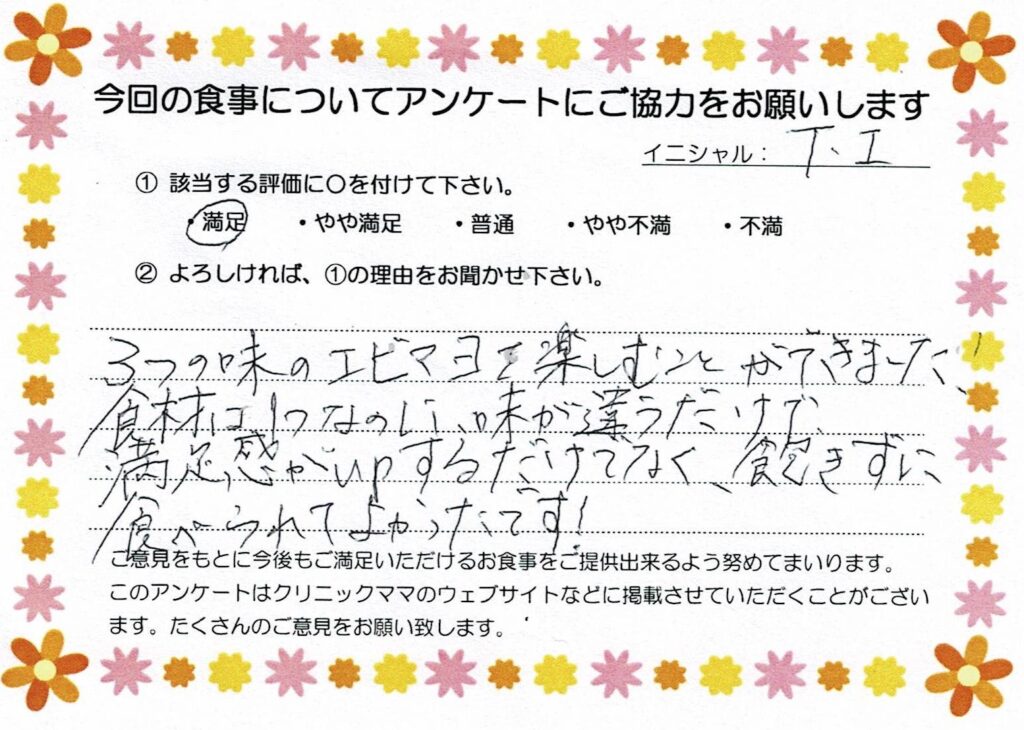 今回の食事についてアンケートにご協力をお願いします
イニシャル： T、I
① 該当する評価に〇を付けて下さい。
・満足 ・やや満足 ・普通 ・やや不満 ・不満
② よろしければ、①の理由をお聞かせ下さい。
3つの味のエビマヨを楽しむことができました！
食材は1つなのに、味が違うだけで、
満足感がupするだけでなく、飽きずに
食べられてよかったです!
ご意見をもとに今後もご満足いただけるお食事をご提供出来るよう努めてまいります。
このアンケートはクリニックママのウェブサイトなどに掲載させていただくことがござい
ます。たくさんのご意見をお願い致します。